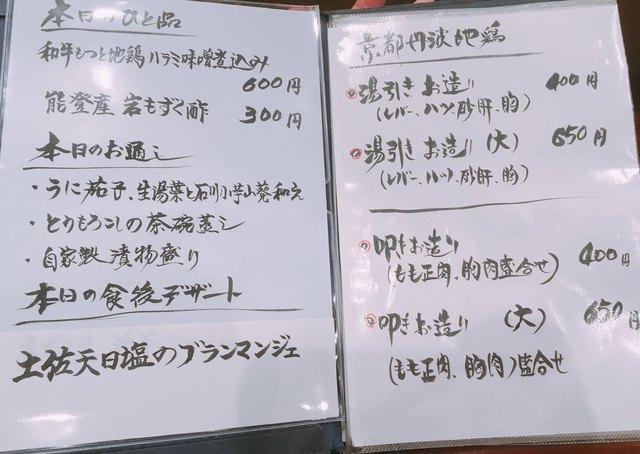 本日のひと品
和牛もつと地鶏ハラミ味噌煮込み
600円
能登産 岩もずく酢 300円
本日のお通し
・うに茄子、生湯葉と石川小芋山葵和え
・とりもろこしの茶碗蒸し
・自家製 漬物盛り
本日の食後デザート
土佐天日塩のブランマンジェ
京都丹波地鶏
湯引きお造り 400円
(レバー、ハツ、砂肝、胸)
湯引きお造り (大) 650円
(レバー、ハツ、砂肝、胸)
叩きお造り 400円
(もも正肉、胸肉盛合せ)
叩きお造り (大) 650円
(もも正肉、胸肉)盛合せ